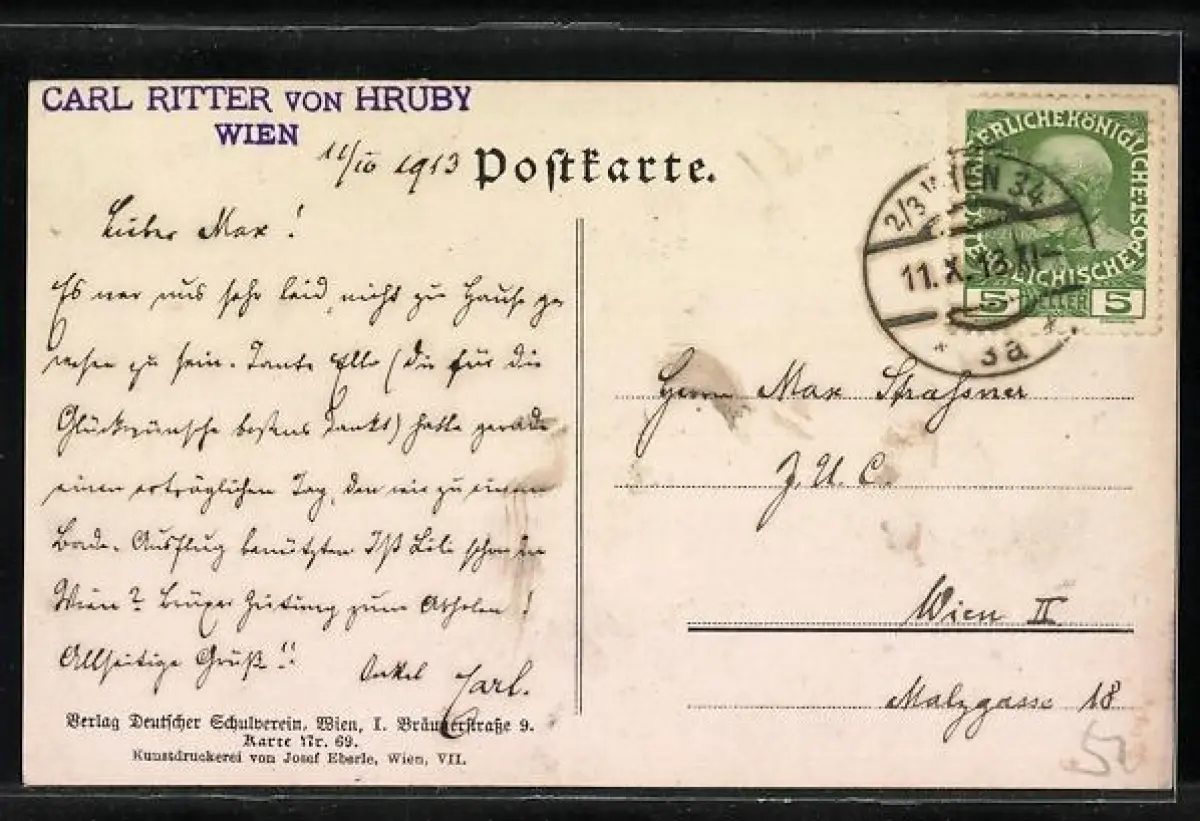 CARL RITTER VON HRUBY
WIEN
11/10 1913
Postkarte.
Lieber Max!
Es war uns sehr leid, nicht zu Hause ge
wesen zu sein. Tante Ella (die für die
Glückwünsche bestens dankt) hatte gerade
einen erträglichen Tag, den wir zu einem
Bade-Ausflug benützten. Ist Lili schon in
Wien? Brüxer Zeitung zum Abholen!
Allseitige Grüße!!
Onkel Carl.
Verlag Deutscher Schulverein, Wien, I. Bräunerstraße 9.
Karte Nr. 69.
Kunstdruckerei von Josef Eberle, Wien, VII.
KAISERLICHEKÖNIGLICHE
ÖSTERREICHISCHEPOST
5 HELLER 5
2/3 WIEN 34
11.X.13.XI-
* 3a *
Herrn Max Strassner
J. U. C.
Wien II
Malzgasse 18